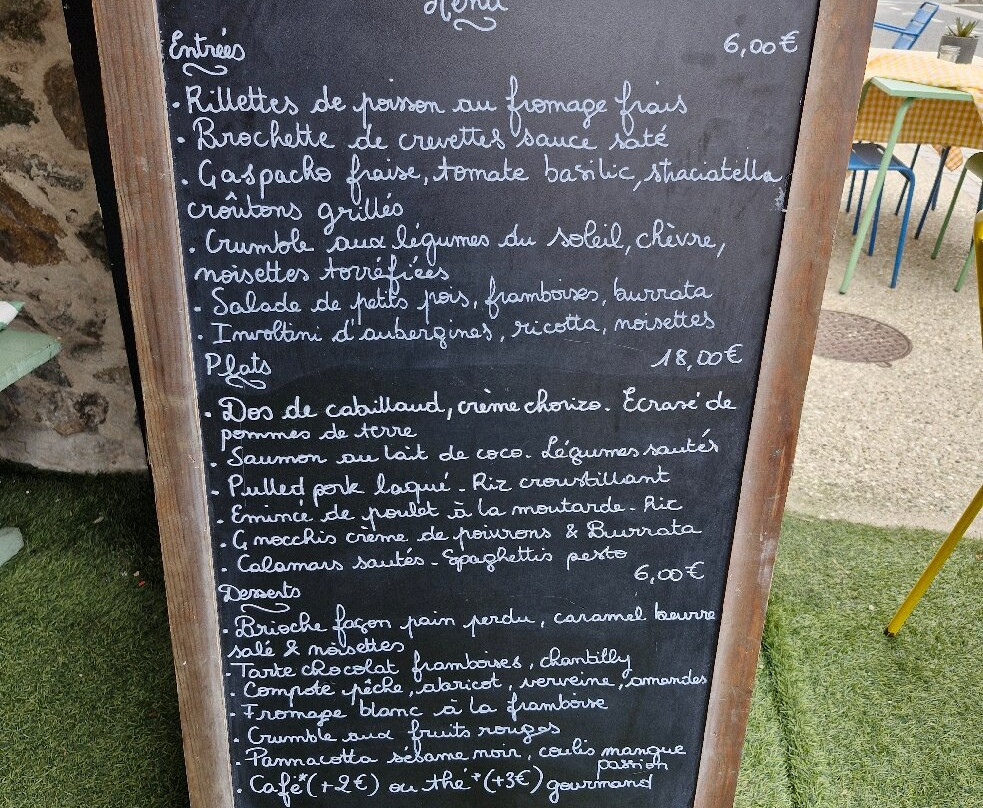 Menu
Entrées 6,00€
• Rillettes de poisson au fromage frais
• Brochette de crevettes sauce saté
• Gaspacho fraise, tomate basilic, straciatella
croûtons grillés
• Crumble aux légumes du soleil, chèvre,
noisettes torréfiées
• Salade de petits pois, framboises, burrata
• Involtini d'aubergines, ricotta, noisettes
Plats 18,00€
• Dos de cabillaud, crème chorizo. Ecrasé de
pommes de terre
• Saumon au lait de coco. Légumes sautés
• Pulled pork laqué - Riz croustillant
• Emincé de poulet à la moutarde - Riz
• Gnocchis crème de poivrons & Burrata
• Calamars sautés - Spaghettis pesto
Desserts 6,00€
• Brioche façon pain perdu, caramel beurre
salé & noisettes
• Tarte chocolat framboises, chantilly
• Compote pêche, abricot, verveine, amandes
• Fromage blanc à la framboise
• Crumble aux fruits rouges
• Pannacotta sésame noir, coulis mangue
passion
• Café*(+2€) ou thé*(+3€) gourmand